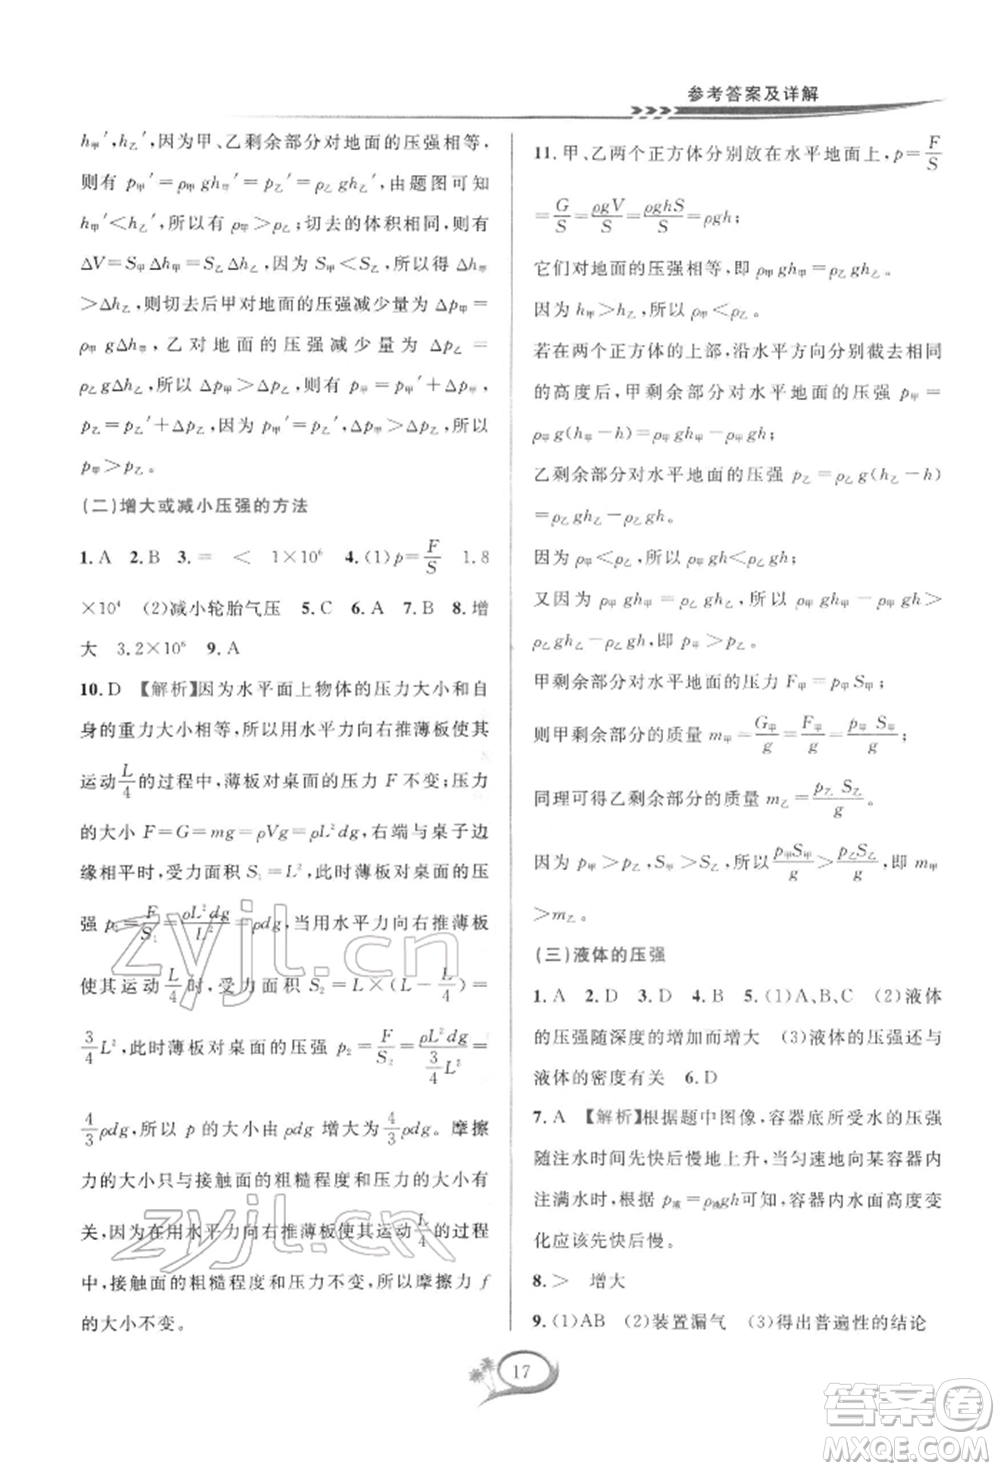 参考答案及详解
h甲′,h乙′,因为甲、乙剩余部分对地面的压强相等,
则有 p甲′=ρ甲gh甲′=p乙′=ρ乙gh乙′,由题图可知
h甲′<h乙′,所以有 ρ甲>ρ乙;切去的体积相同,有
ΔV=S甲Δh甲=S乙Δh乙,因为 S甲<S乙,所以得 Δh甲
>Δh乙,则切去后甲对地面的压强减少量为 Δp甲=
ρ甲gΔh甲,乙对地面的压强减少量为 Δp乙=
ρ乙gΔh乙,所以 Δp甲>Δp乙,则有 p甲=p甲′+Δp甲,
p乙=p乙′+Δp乙,因为 p甲′=p乙′,Δp甲>Δp乙,所以
p甲>p乙。
(二)增大或减小压强的方法
1.A 2.B 3.= < 1×10⁶ 4.(1)p=F/S 1.8
×10⁴ (2)减小轮胎气压 5.C 6.A 7.B 8.增
大 3.2×10⁶ 9.A
10.D 【解析】因为水平面上物体的压力大小和自
身的重力大小相等,所以用水平力向右推薄板使其
运动L/4的过程中,薄板对桌面的压力 F 不变;压力
的大小 F=G=mg=ρVg=ρL²dg,右端与桌子边
缘相平时,受力面积 S₁=L²,此时薄板对桌面的压
强 p₁=F/S₁=ρL²dg/L²=ρdg;当用水平力向右推薄板
使其运动L/4时,受力面积 S₂=L×(L-L/4)=
3/4L²,此时薄板对桌面的压强 p₂=F/S₂=ρL²dg/(3/4L²)=
4/3ρdg,所以 p 的大小由 ρdg 增大为4/3ρdg。摩擦
力的大小与接触面的粗糙程度和压力大小有
关,因为在用水平力向右推薄板使其运动L/4的过程
中,接触面的粗糙程度和压力不变,所以摩擦力 f
的大小不变。
11.甲、乙两个正方体分别放在水平地面上,p=F/S
=G/S=ρgV/S=ρghS/S=ρgh;
它们对地面的压强相等,即 ρ甲gh甲=ρ乙gh乙。
因为 h甲>h乙,所以 ρ甲<ρ乙。
若在两个正方体的上部,沿水平方向分别截去相同
的高度后,甲剩余部分对水平地面的压强 p甲=
ρ甲g(h甲-h)=ρ甲gh甲-ρ甲gh;
乙剩余部分对水平地面的压强 p乙=ρ乙g(h乙-h)
=ρ乙gh乙-ρ乙gh;
因为 ρ甲<ρ乙,所以 ρ甲gh<ρ乙gh。
又因为 ρ甲gh甲=ρ乙gh乙,所以 ρ甲gh甲-ρ甲gh>
ρ乙gh乙-ρ乙gh,即 p甲>p乙。
甲剩余部分对水平地面的压力 F甲=G甲=p甲S甲,
则甲剩余部分的质量 m甲=G甲/g=F甲/g=p甲S甲/g;
同理可得乙剩余部分的质量 m乙=p乙S乙/g。
因为 p甲>p乙,S甲>S乙,所以p甲S甲/g>p乙S乙/g,即 m甲
>m乙。
(三)液体的压强
1.A 2.D 3.D 4.A 5.(1)A、B、C (2)液体
的压强随深度的增加而增大 (3)液体的压强还与
液体的密度有关 6.D
7.A 【解析】根据题中图像,容器底所受水的压强
随注水时间先快后慢地上升,当匀速地向某容器内
注满水时,根据 p液=ρ液gh可知,容器内水面高度变
化应该先快后慢。
8.> 增大
9.(1)AB (2)装置漏气 (3)得出普遍性的结论
17
zyjl.cn
zyjl.cn
答案圈
MXQE.COM